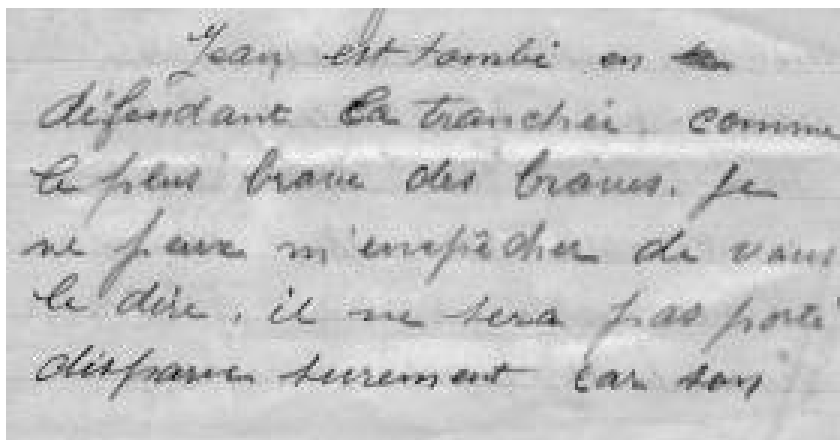 Jean est tombé en
défendant la tranchée, comme
le plus brave des braves. Je
ne peux m'empêcher de vous
le dire, il ne sera pas porté
disparu surement car son